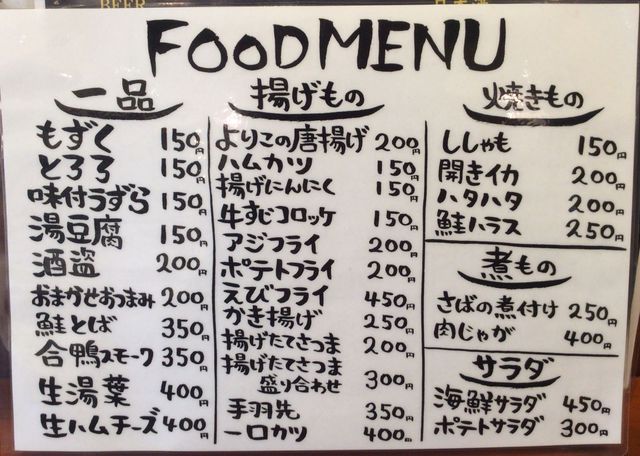 BEER
日本酒
FOOD MENU
一品
もずく 150円
とろろ 150円
味付うずら 150円
湯豆腐 150円
酒盗 200円
おまかせおつまみ 200円
鮭とば 350円
合鴨スモーク 350円
生湯葉 400円
生ハムチーズ 400円
揚げもの
よりこの唐揚げ 200円
ハムカツ 150円
揚げにんにく 150円
牛すじコロッケ 150円
アジフライ 200円
ポテトフライ 200円
えびフライ 450円
かき揚げ 250円
揚げたてさつま 200円
揚げたてさつま
盛り合わせ 300円
手羽先 350円
一口カツ 400円
焼きもの
ししゃも 150円
開きイカ 200円
ハタハタ 200円
鮭ハラス 250円
煮もの
さばの煮付け 250円
肉じゃが 400円
サラダ
海鮮サラダ 450円
ポテトサラダ 300円